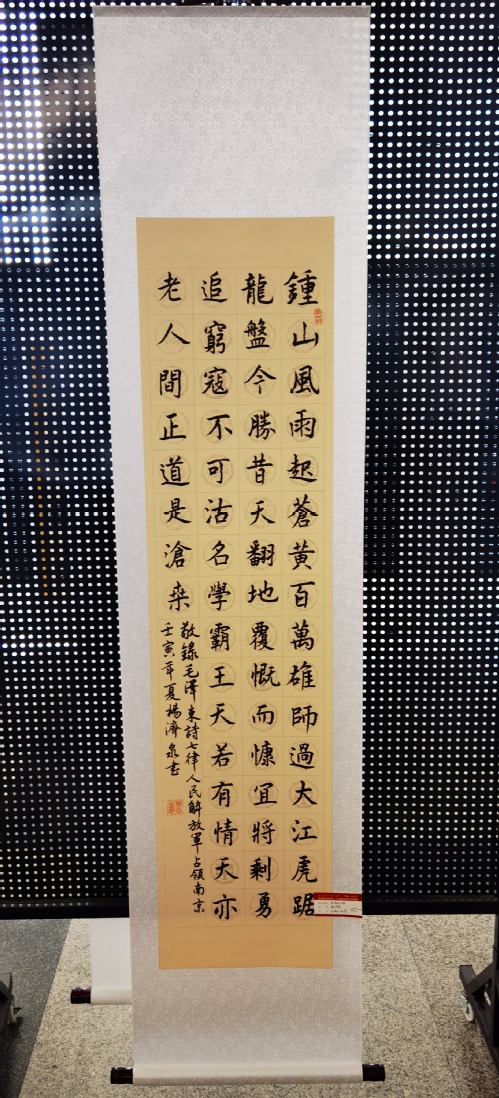 鍾山風雨起蒼黃百萬雄師過大江虎踞
龍盤今勝昔天翻地覆慨而慷宜將剩勇
追窮寇不可沽名學霸王天若有情天亦
老人間正道是滄桒
敬錄毛澤東詩七律人民解放軍占領南京
壬寅年夏楊濟泉書